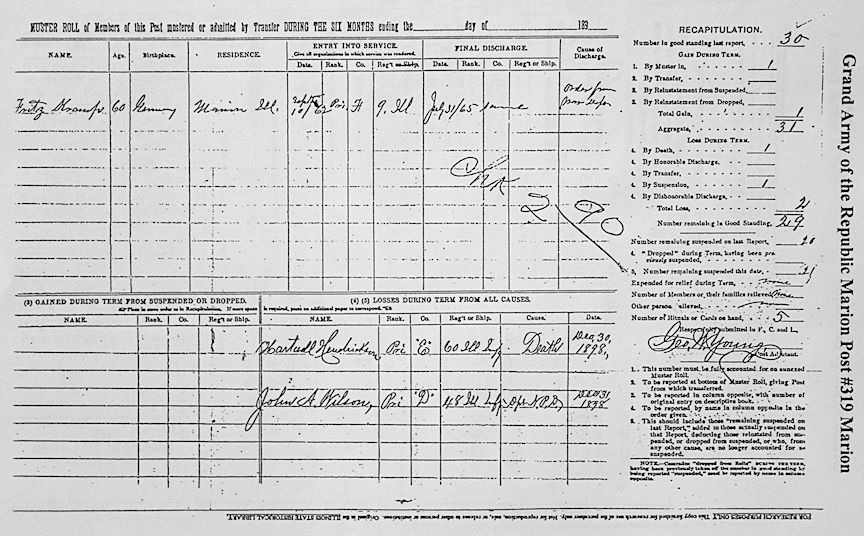 MUSTER ROLL of Members of this Post mustered or admitted by Transfer DURING THE SIX MONTHS ending the day of 189
NAME. Age. Birthplace. RESIDENCE. ENTRY INTO SERVICE. FINAL DISCHARGE. Cause of Discharge.
Give all organizations in which service was rendered.
Date. Rank. Co. Reg't or Ship. Date. Rank. Co. Reg't or Ship.
Fritz 60 Germany Marion Ill. Pri H 9. Ill July 31/65 same
Ch A
2 90
(3) GAINED DURING TERM FROM SUSPENDED OR DROPPED.
NAME. Rank. Co. Reg't or Ship.
(4) (5) LOSSES DURING TERM FROM ALL CAUSES.
is required, paste on additional paper to correspond.
NAME. Rank. Co. Reg't or Ship. Cause. Date.
Hendrickson Pri "E" 60 Ill Inf Death Dec, 30, 1898,
John A. Wilson, Pri "D" 48 Ill Inf Dec 31 1898
RECAPITULATION.
Number in good standing last report, 30
GAIN DURING TERM.
1. By Muster in, 1
2. By Transfer,
3. By Reinstatement from Suspended,
3. By Reinstatement from Dropped,
Total Gain, 1
Aggregate, 31
LOSS DURING TERM.
4. By Death, 1
4. By Honorable Discharge,
4. By Transfer,
4. By Suspension, 1
4. By Dishonorable Discharge,
Total Loss, 2
Number remaining in Good Standing, 29
Number remaining suspended on last Report, 20
4. "Dropped" during Term, having been previously suspended,
5. Number remaining suspended this date, 21
Expended for relief during Term, none
Number of Members or their families relieved, none
Other person relieved,
Number of Rituals or Cards on hand, 5
Respectfully submitted in F., C. and L.,
Geo. W. Young
Post Adjutant.
1. This number must be fully accounted for on annexed Muster Roll.
2. To be reported at bottom of Muster Roll, giving Post from which transferred.
3. To be reported in column opposite, with number of original entry on descriptive book.
4. To be reported by name in column opposite in the order given.
5. This should include those "remaining suspended on last Report," added to those actually suspended on that Report, deducting those reinstated from suspended, or dropped from suspended, or who, from any other cause, are no longer accounted for as suspended.
NOTE.—Comrades "dropped from Rolls" DURING THE TERM, having been previously taken off the number in good standing by being reported "suspended," must be reported by name in column opposite.
Grand Army of the Republic Marion Post #319 Marion
FOR RESEARCH PURPOSES ONLY. This copy furnished for use of the purchaser only, not for reproduction, nor sale, nor release to other persons or institutions. Original in the ILLINOIS STATE HISTORICAL LIBRARY.